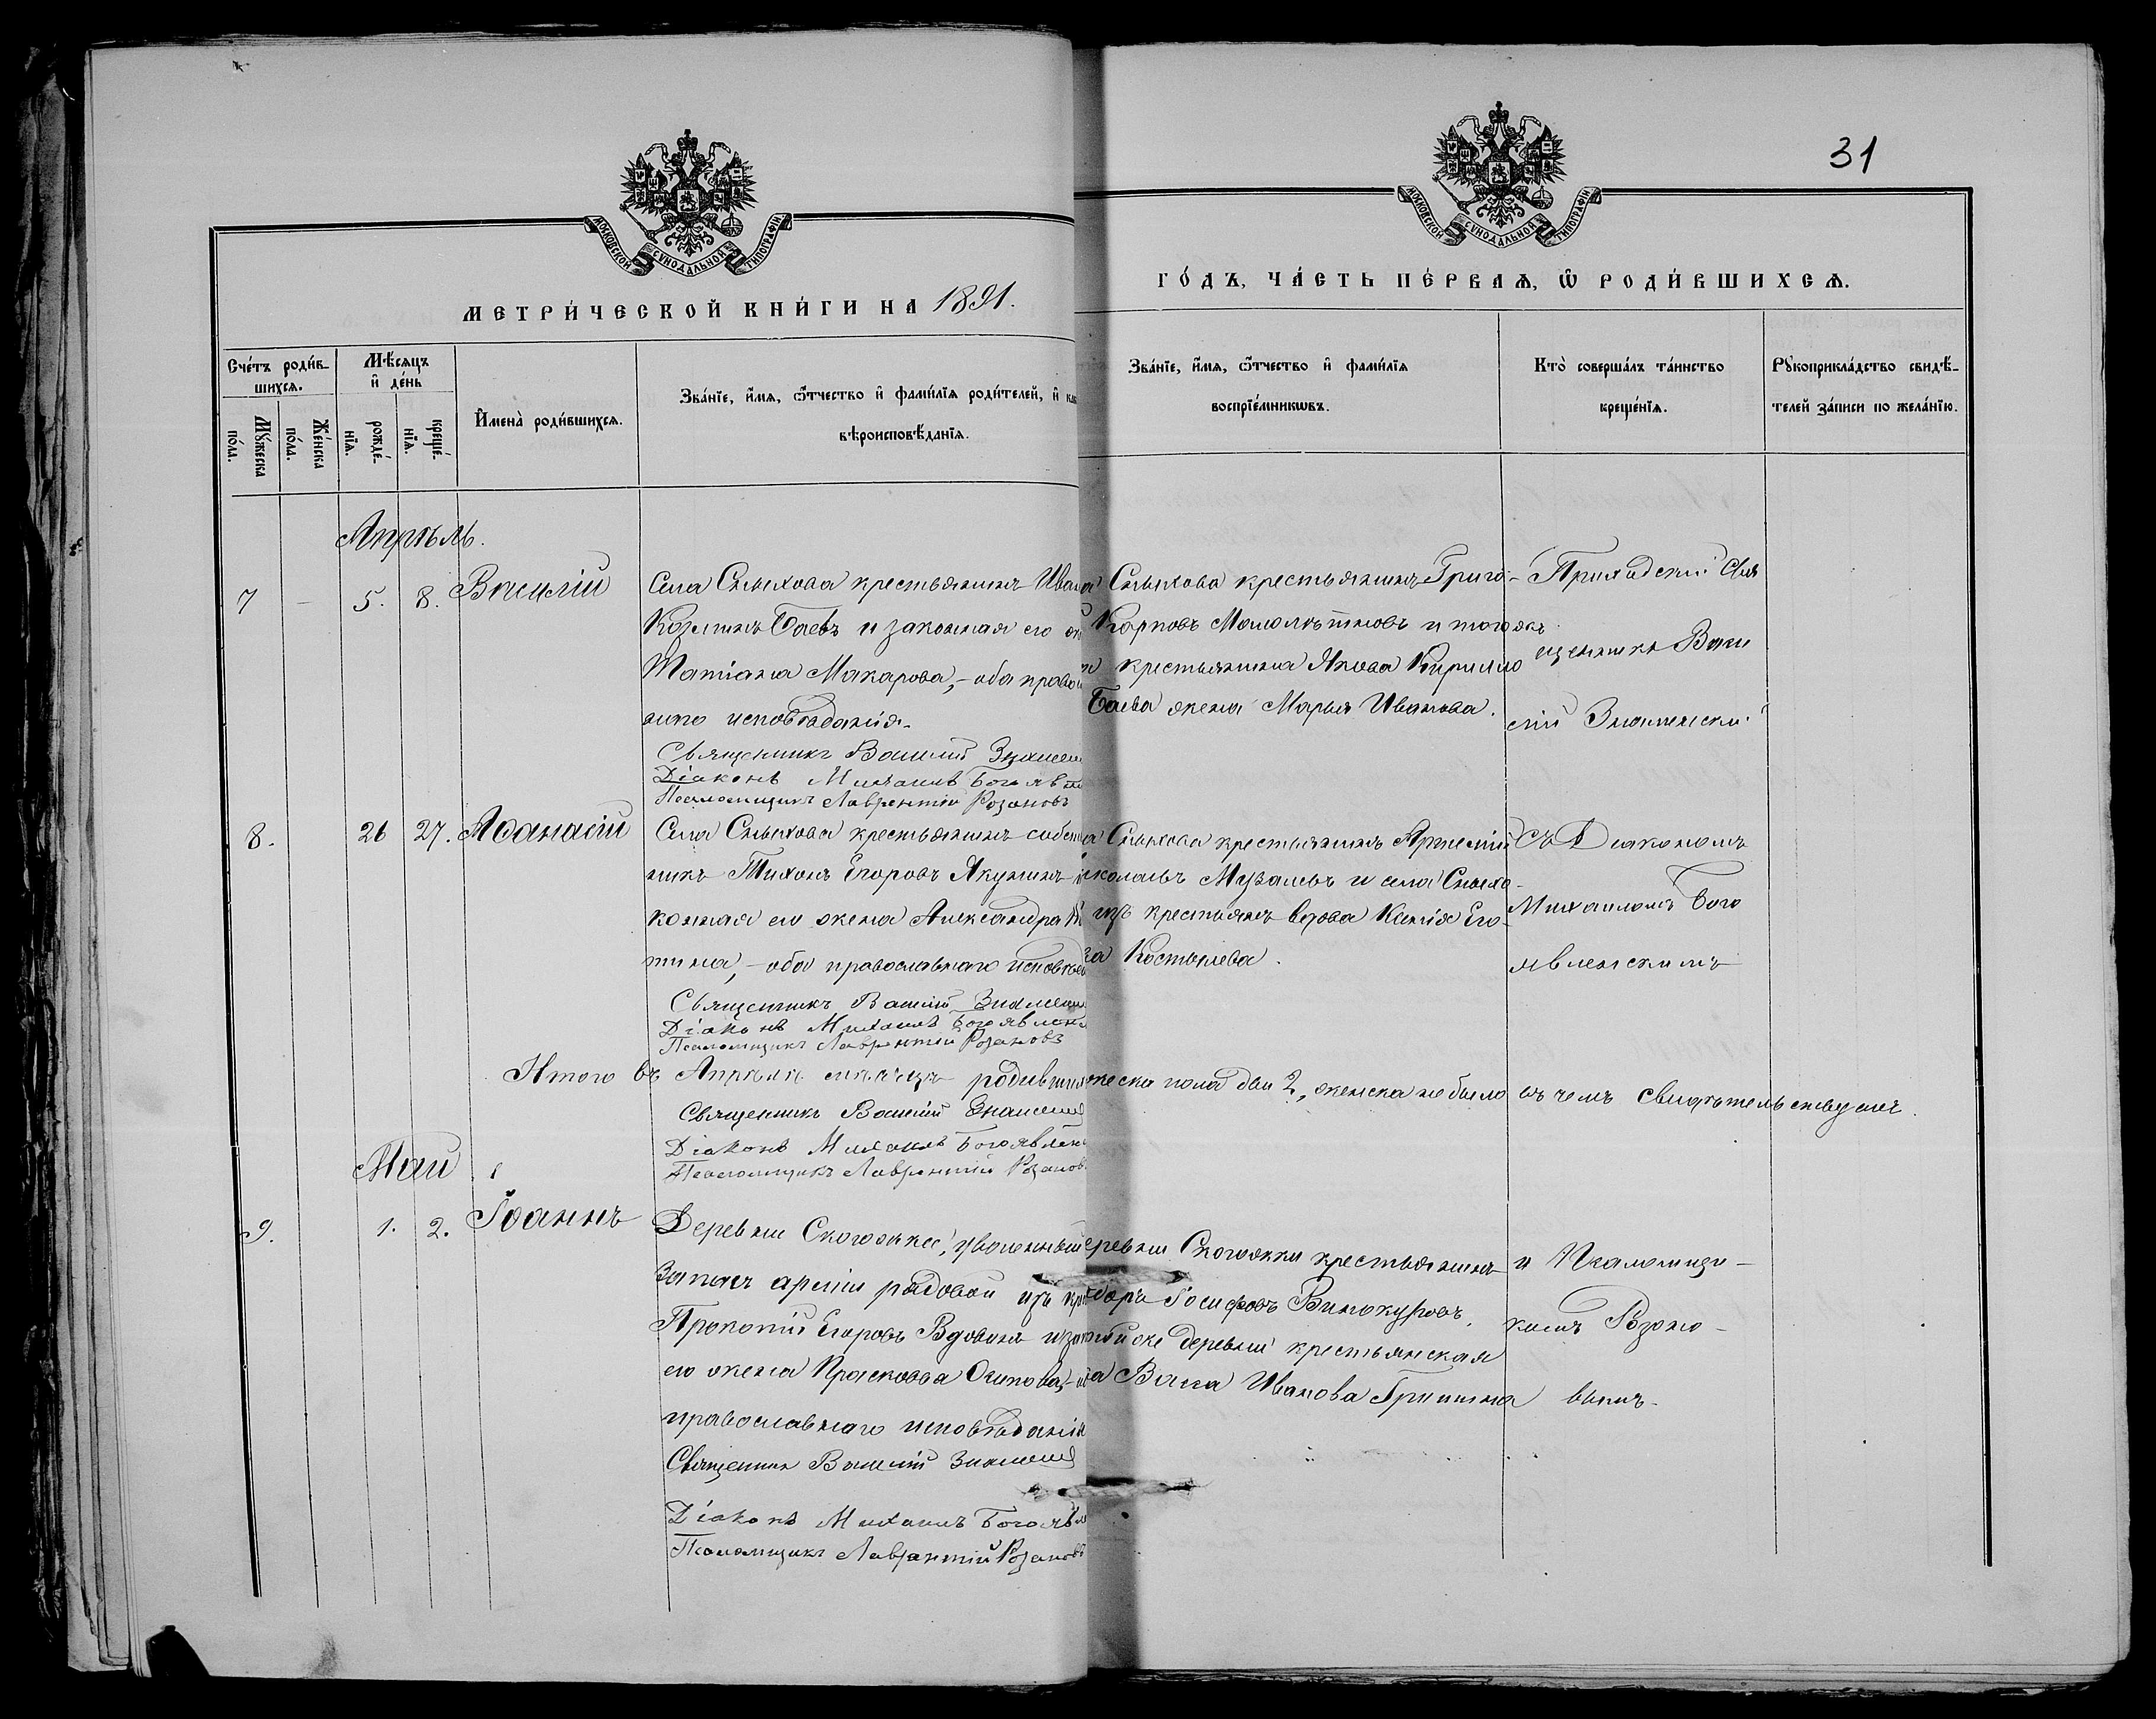 31
МОСКОВСКОЙ СѴНОДАЛЬНОЙ ТИПОГРАФІИ
МОСКОВСКОЙ СѴНОДАЛЬНОЙ ТИПОГРАФІИ
МЕТРИ́ЧЕСКОЙ КНИ́ГИ НА 1891.
ГО́ДЪ, ЧА́СТЬ ПЕ́РВАѦ, Ѽ РОДИ́ВШИХСѦ.
Сче́тъ роди́в-
шихсѧ.
Му́жеска
по́ла.
Же́нска
по́ла.
Мѣ́сяцъ
и҆ де́нь
рожде́-
нїѧ.
креще́-
нїѧ.
И҆мена̀ роди́вшихсѧ.
Зва́нїе, и҆́мѧ, ѻ҆́тчество и҆ фами́лїѧ роди́телей, и҆
вѣроисповѣ́данїѧ.
Зва́нїе, и҆́мѧ, ѻ҆́тчество и҆ фами́лїѧ
воспрїе́мникѡвъ.
Кто̀ соверша́лъ та́инство
креще́нїѧ.
Рꙋкоприкла́дство свидѣ́-
телей за́писи по жела́нїю.
Апрѣль.
7 — 5. 8. Василій
Села Смыкова крестьянинъ Иван
Козминъ Баевъ и законная его
Татіана Макарова, – оба право
наго исповѣданія.
Священникъ Василій Знамен
Діаконъ Михаилъ Богоявле
Псаломщикъ Лаврентій Розановъ
Смыкова крестьянинъ Григо-
Карповъ Малолѣтновъ и того же
крестьянина Якова Кирилло
Баева жена Марья Иванова.
Приходскій Свя
щенникъ Васи
лій Знаменскій
8. 26 27. Аѳанасій
Села Смыкова крестьянинъ собствен
никъ Тихонъ Егоровъ Якунинъ
конная его жена Александра
тина, – оба православнаго исповѣд
Священникъ Василій Знамен
Діаконъ Михаилъ Богоявлен
Псаломщикъ Лаврентій Розановъ
Смыкова крестьянинъ Артемій
колаевъ Музалевъ и села Смыко-
изъ крестьянъ вдова Ксенія Его-
ва Костылева.
Съ Діакономъ
Михаиломъ Бого
явленскимъ
Итого въ Апрѣлѣ мѣсяцѣ родивши жеска пола два 2, женска не было въ чемъ свидѣтельствуемъ.
Священникъ Василій Знамен
Діаконъ Михаилъ Богоявлен
Псаломщикъ Лаврентій Розанов
Май
9. 1. 2. Іоаннъ
Деревни Скогожки, уволенный
Запасъ арміи рядовой изъ кр
Прокопій Егоровъ Вдовинъ и зак
его жена Прасковья Осипова, –
православнаго исповѣданія
Священникъ Василій Знамен
Діаконъ Михаилъ Богоявл
Псаломщикъ Лаврентій Розановъ
еревни Скогожки крестьянинъ
доръ Іосифовъ Винокуровъ.
той же деревни крестьянская
Васса Иванова Гришина
и Псаломщи-
комъ Розано-
вымъ.